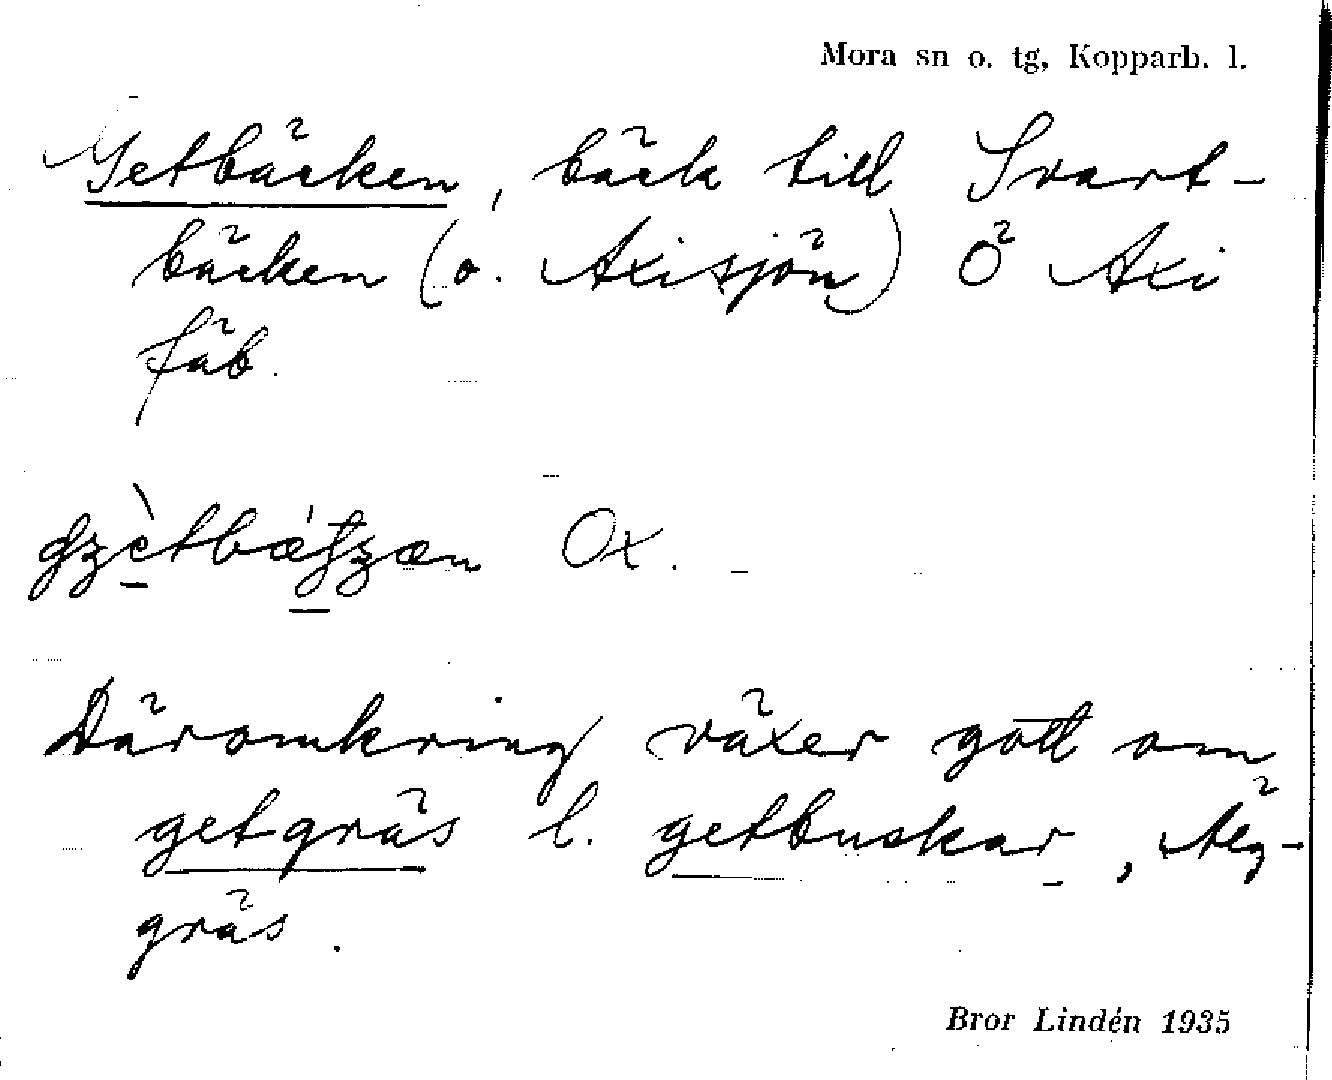 Mora sn o. tg, Kopparb. l.
Getbäcken, bäck till Svart-
bäcken (o. Axisjön) Ö Axi
fäb.
Ox.
Däromkring växer gott om
getgräs l. getbuskar, Älg-
gräs.
Bror Lindén 1935